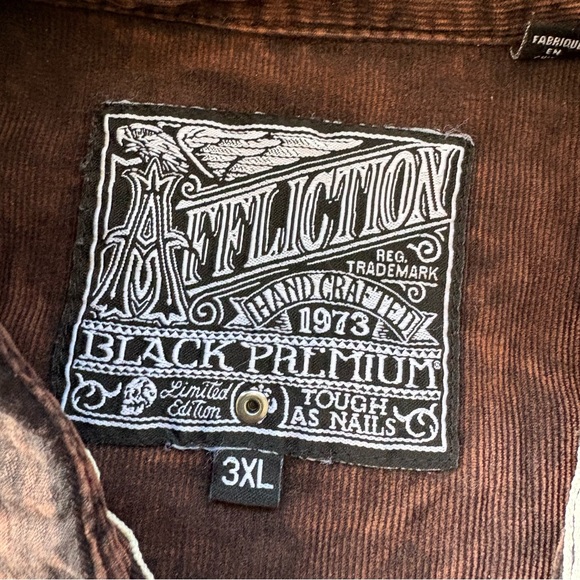 FABRIQUÉ
EN
AFFLICTION
REG.
TRADEMARK
HAND CRAFTED
1973
BLACK PREMIUM
Limited
Edition
TOUGH
AS NAILS
3XL